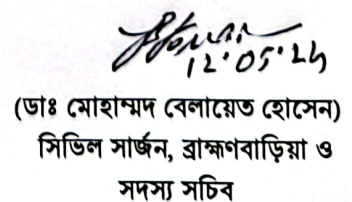 12.05.24
(ডাঃ মোহাম্মদ বেলায়েত হোসেন)
সিভিল সার্জন, ব্রাহ্মণবাড়িয়া ও
সদস্য সচিব